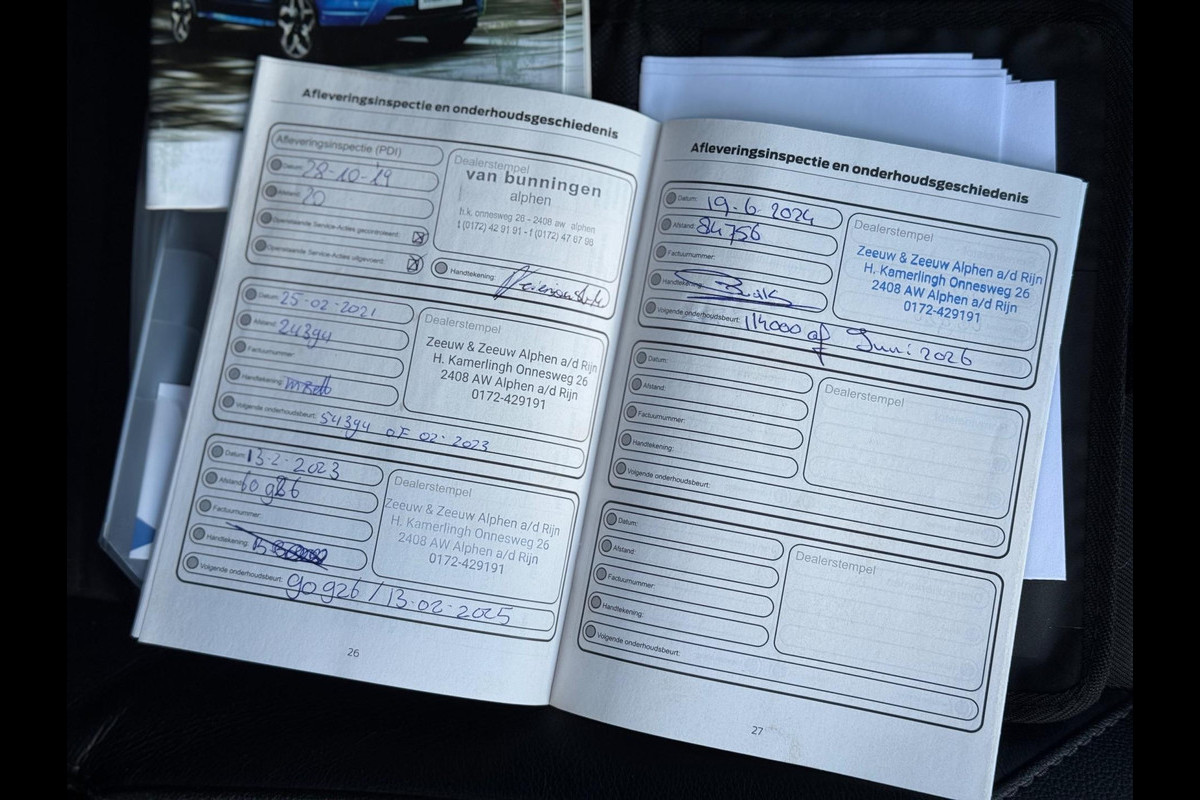 Afleveringsinspectie en onderhoudsgeschiedenis
Afleveringsinspectie (PDI)
Datum: 28-10-19
Afstand: 20
Openstaande Service-Acties gecontroleerd:
Openstaande Service-Acties uitgevoerd:
Dealerstempel
van bunningen
alphen
h.k. onnesweg 26 - 2408 aw alphen
t (0172) 42 91 91 - f (0172) 47 67 98
Handtekening:
Datum: 25-02-2021
Afstand: 24394
Factuurnummer:
Handtekening:
Volgende onderhoudsbeurt: 54394 OF 02-2023
Dealerstempel
Zeeuw & Zeeuw Alphen a/d Rijn
H. Kamerlingh Onnesweg 26
2408 AW Alphen a/d Rijn
0172-429191
Datum: 13-2-2023
Afstand: 60926
Factuurnummer:
Handtekening:
Volgende onderhoudsbeurt: 90926 / 13-02-2025
Dealerstempel
Zeeuw & Zeeuw Alphen a/d Rijn
H. Kamerlingh Onnesweg 26
2408 AW Alphen a/d Rijn
0172-429191
26
Afleveringsinspectie en onderhoudsgeschiedenis
Datum: 19-6-2024
Afstand: 84756
Factuurnummer:
Handtekening:
Volgende onderhoudsbeurt: 114000 of Juni 2026
Dealerstempel
Zeeuw & Zeeuw Alphen a/d Rijn
H. Kamerlingh Onnesweg 26
2408 AW Alphen a/d Rijn
0172-429191
Datum:
Afstand:
Factuurnummer:
Handtekening:
Volgende onderhoudsbeurt:
Dealerstempel
Datum:
Afstand:
Factuurnummer:
Handtekening:
Volgende onderhoudsbeurt:
Dealerstempel
27